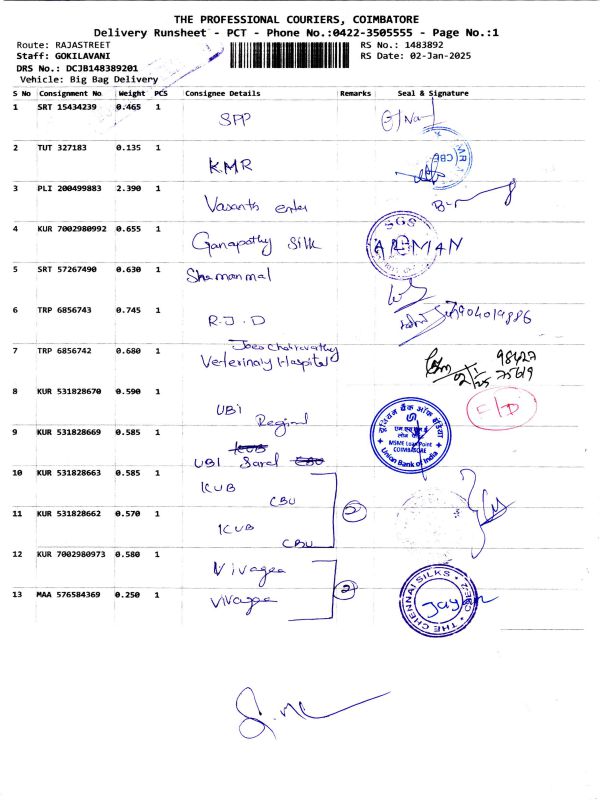 THE PROFESSIONAL COURIERS, COIMBATORE
Delivery Runsheet - PCT - Phone No.:0422-3505555 - Page No.:1
Route: RAJASTREET
Staff: GOKILAVANI
DRS No.: DCJB148389201
Vehicle: Big Bag Delivery
RS No.: 1483892
RS Date: 02-Jan-2025
S No Consignment No Weight PCS Consignee Details Remarks Seal & Signature
1 SRT 15434239 0.465 1
SPP
2 TUT 327183 0.135 1
KMR
CBE
3 PLI 200499883 2.390 1
Vasanth enter
4 KUR 7002980992 0.655 1
Ganapathy Silk
SGS
5 SRT 57267490 0.630 1
Shamanmal
6 TRP 6856743 0.745 1
R.J.D
7904019886
7 TRP 6856742 0.680 1
Veterinary Hospital
98427
75619
2/1/25
8 KUR 531828670 0.590 1
UBI
Regional
यूनियन बैंक ऑफ इंडिया
MSME Loan Point
COIMBATORE
Union Bank of India
9 KUR 531828669 0.585 1
UBI Saral
10 KUR 531828663 0.585 1
KUB
CBU
11 KUR 531828662 0.570 1
2
KUB
CBU
12 KUR 7002980973 0.580 1
Vivagaa
13 MAA 576584369 0.250 1
2
Vivagaa
THE CHENNAI SILKS